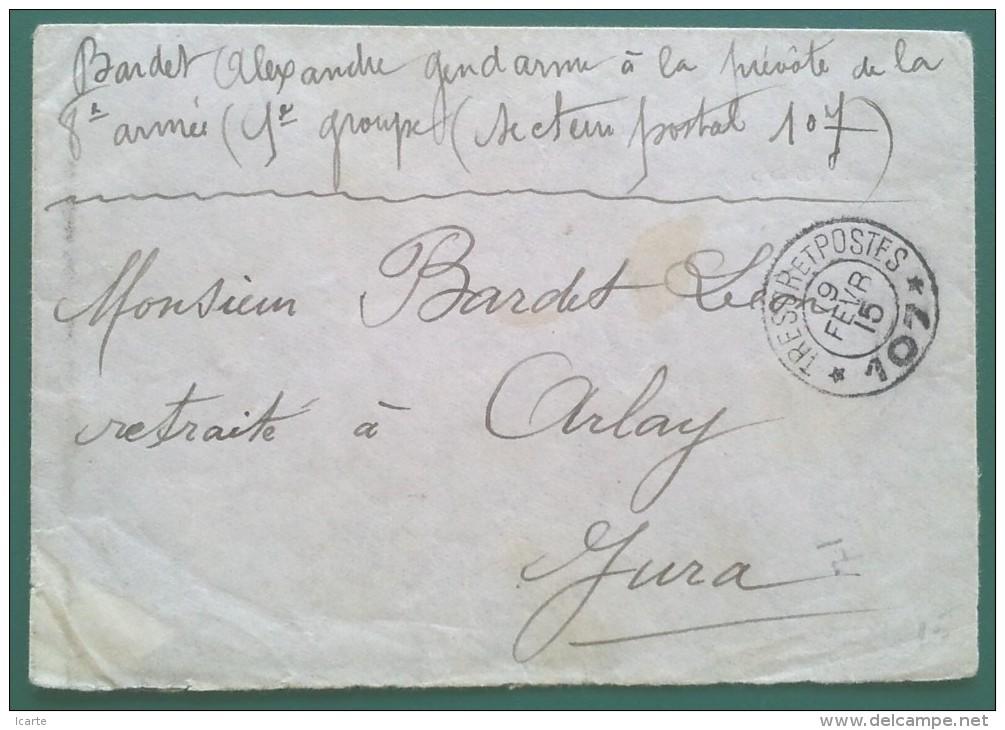 Bardet Alexandre gendarme à la prévôté de la
8e armée (1er groupe (secteur postal 107)
Monsieur Bardet Léon
retraité à Arlay
Jura
TRESOR ET POSTES
19
FEVR
15
107
Icarte
www.delcampe.net